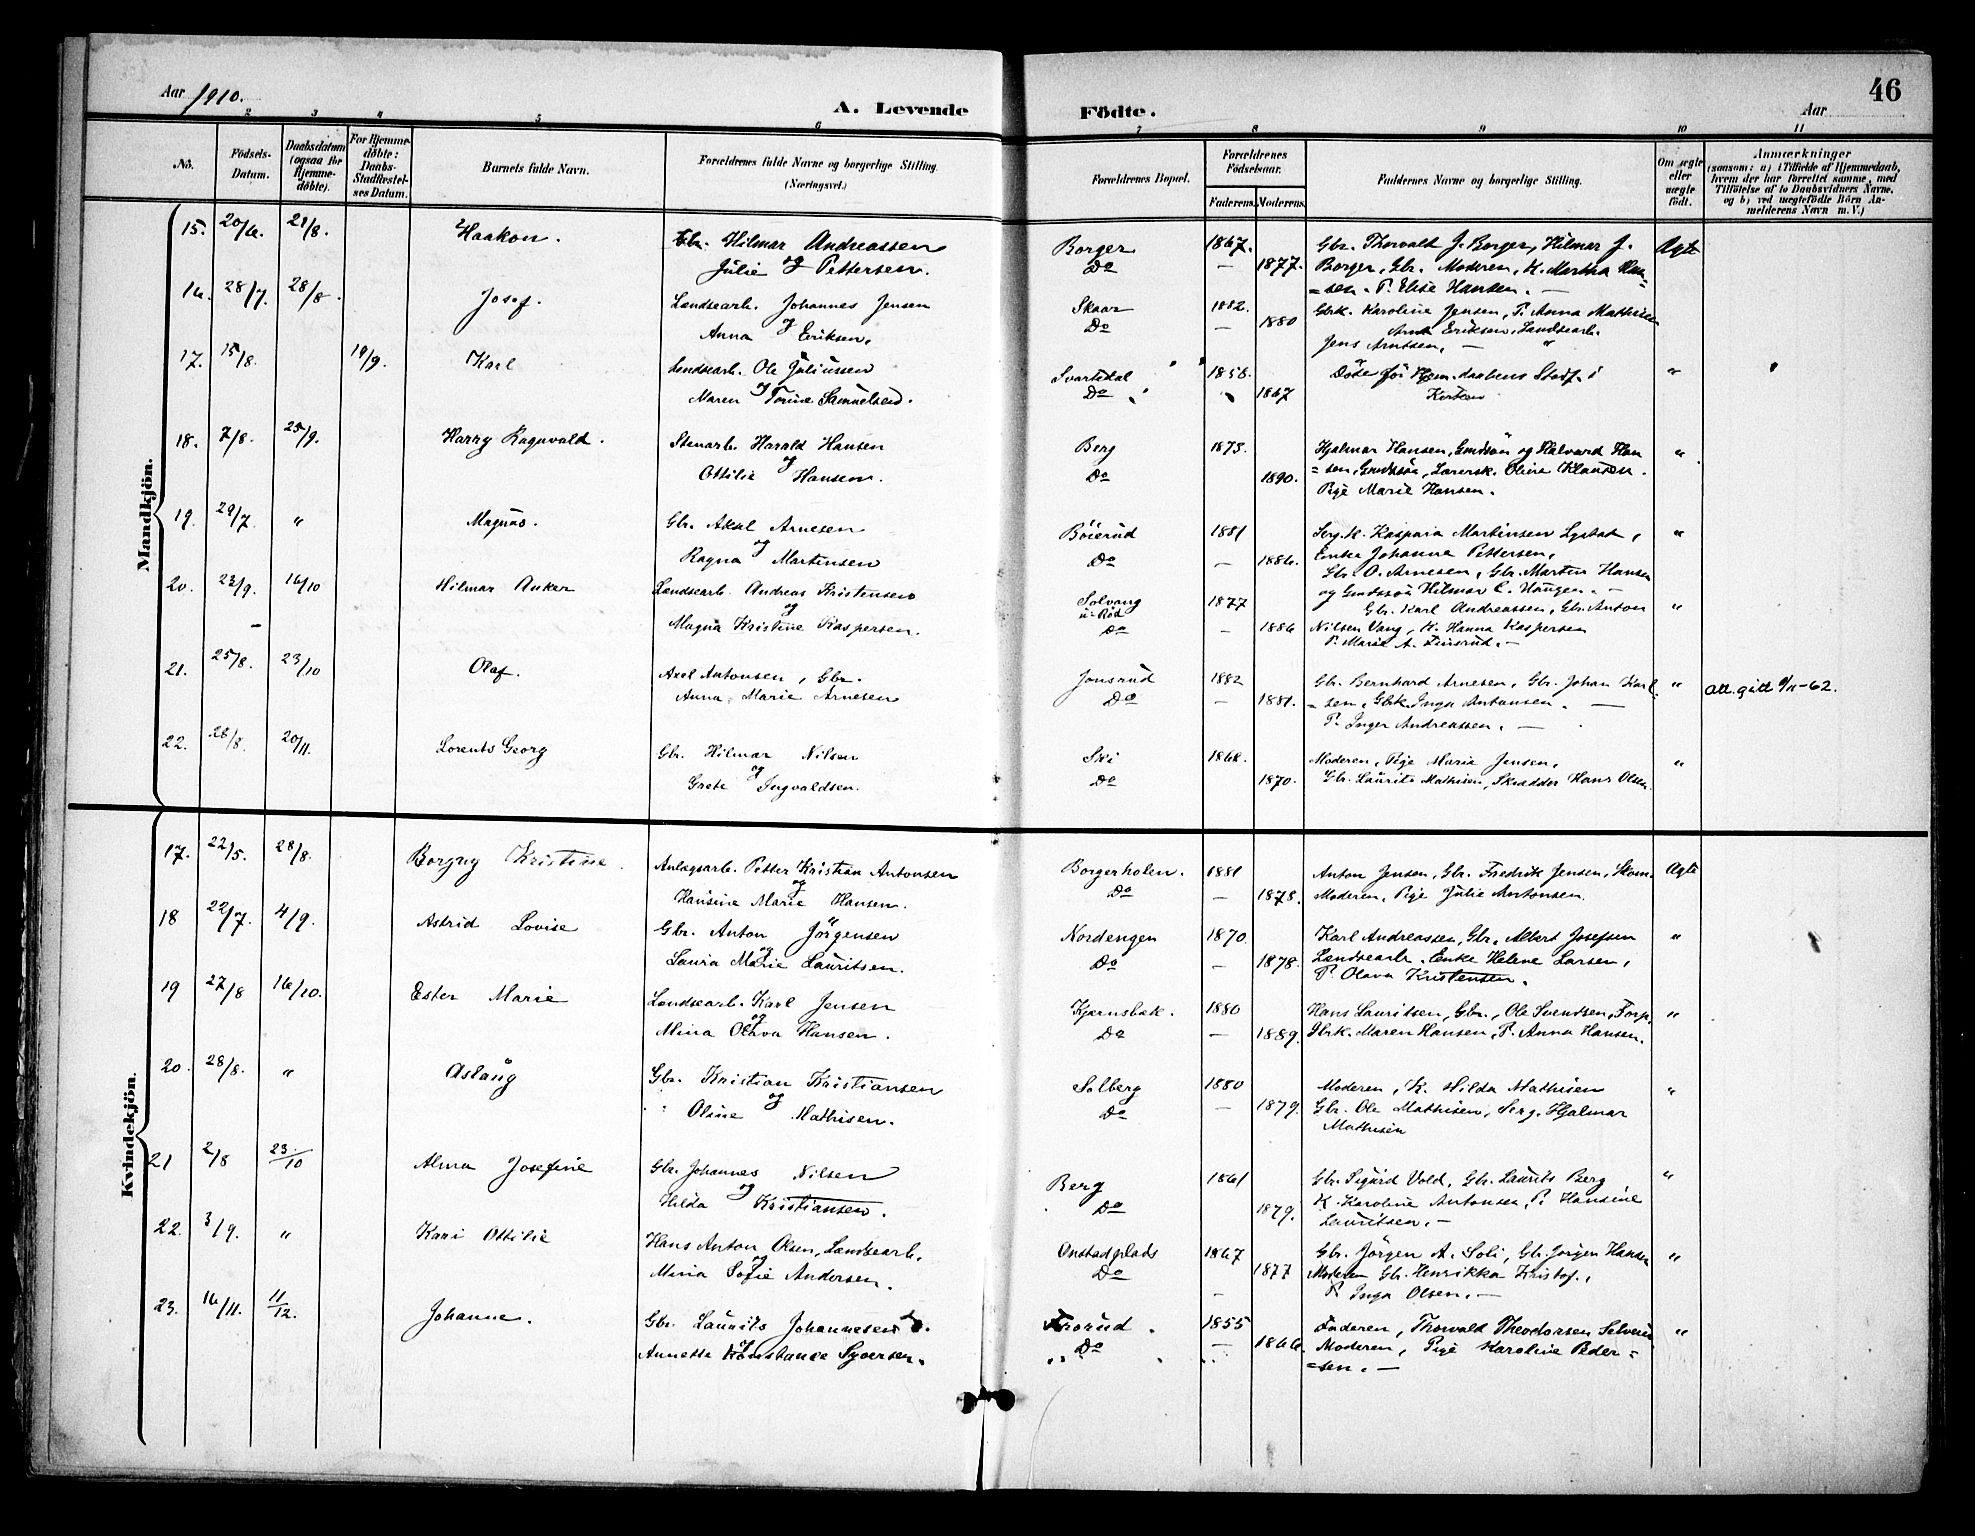 46
Aar 1910.
A. Levende Födte.
Aar
2 3 4 5 6 7 8 9 10 11
No.
Födsels-Datum.
Daabsdatum (ogsaa for Hjemmedøbte).
For Hjemmedøbte: Daabs-Stadfæstelses Datum.
Barnets fulde Navn.
Forældrenes fulde Navne og borgerlige Stilling. (Næringsvei.)
Forældrenes Bopæl.
Forældrenes Fødselsaar.
Faderens. Moderens.
Faddernes Navne og borgerlige Stilling.
Om ægte eller uægte født.
Anmærkninger
(saasom: a) i Tilfælde af Hjemmedaab, hvem der har forrettet samme, med Tilføielse af to Daabsvidners Navne, og b) ved uægtefødte Børn Anmelderens Navn m. V.)
Mandkjön.
15. 20/6. 21/8. Haakon. Gbr. Hilmar Andreassen Borger 1867. Gbr. Thorvald J. Borger, Hilmar J. Ægte
og Julie Pettersen. Do — 1877. Borger, Gbr. Moderen, K. Martha Han=
=sen. P. Elise Hansen. —
16. 28/7. 28/8. Josef. Landsearb. Johannes Jensen Skaar 1882. Gbrk. Karoline Jensen, P. Anna Mathisen
og Anna Eriksen. Do — 1880 Eriksen, Landsearb.
Jens Arntsen, — "
17. 15/8. 19/9. Karl Landsearb. Ole Juliussen Svartdal 1858. Døde før Hjem.daabens Stadf. i "
og Maren Torine Samuelsen. Do 1867 Kirken
18. 7/8. 25/9. Harry Ragnvald. Stenarb. Harald Hansen Berg 1873. Hjalmar Hansen, Grudsøn og Halvard Han "
og Ottilie Hansen. Do 1890. =sen, Lærersk. Olina Klausen.
Pige Marie Hansen.
19. 29/7 " Magnus. Gbr. Aksel Arnesen Böierud 1881 Serg. K. Kasparia Martinsen "
og Ragna Martinsen Do — 1886. Enke Johanna Pettersen,
Gbr. O. Arnesen, Gbr. Martin Hansen
20. 23/9. 16/10 Hilmar Anker Landsearb. Andreas Kristensen Solvang 1877 og Hilmar C. Haugen. —
og u. Rød Gbr. Karl Andreassen, Gbr. Anton "
Magna Kristine Kaspersen. Do — 1886 Nilsen Vang, K. Hanna Kaspersen
P. Maria A. Finsrud. —
21. 25/8. 23/10 Olaf. Axel Antonsen, Gbr. Jonsrud 1882 Gbr. Bernhard Arnesen, Gbr. Johan Karl "
Anna Marie Arnesen Do — 1881. =sen, Gbrk. Inga Antonsen. —
P. Inger Andreassen. —
att. gitt 9/11-62.
22. 26/8. 20/11. Lorents Georg Gbr. Hilmar Nilsen Ski 1868. Moderen, Pige Maria Jensen, "
og Grete Ingvaldsen. Do 1870. Gbr. Laurits Mathisen, Skrædder Hans Olsen.
Kvindekjön.
17. 22/5. 28/8. Borgny Kristine. Anlægsarb. Petter Kristian Antonsen Borgerholen. 1881 Anton Jensen, Gbr. Fredrik Jensen, Skom. Ægte
og Hansine Marie Hansen. Do — 1878. Moderen, Pige Julie Antonsen.
18 22/7. 4/9. Astrid Lovise Gbr. Anton Jörgensen Nordengen 1870. Karl Andreassen, Gbr. Albert Josefsen "
og Laura Marie Lauritsen. Do — 1878. Landsearb. Enke Helene Larsen,
P. Olava Kristensen.
19 27/8 16/10. Ester Marie Landsearb. Karl Jensen Kjærnsbæk. 1880 Hans Lauritsen, Gbr., Ole Svendsen, Forp. "
og Mina Olava Hansen. Do — 1889. Gbrk. Maren Hansen, P. Anna Hansen.
20. 28/8. " Aslaug Gbr. Kristian Kristiansen Solberg 1880 Moderen, K. Hilda Mathisen "
og Oline Mathisen. Do — 1879. Gbr. Ole Mathisen, Serg. Hjalmar
Mathisen
21 2/8 23/10 Alma Josefine Gbr. Johannes Nilsen Berg 1861 Gbr. Sigurd Vold, Gbr. Laurits Berg "
og Hilda Kristiansen. Do 1879. K. Karoline Antonsen, P. Hansine
Lauritsen. —
22. 3/9. " Kari Ottilie Hans Anton Olsen, Landsearb. Onstadplads 1867 Gbr. Jörgen A. Soli, Gbr. Jörgen Hansen "
og Mina Sofie Andersen. Do — 1877 Moderen Gbr. Henrikka Kristof.,
P. Inga Olsen. —
23. 16/11. 11/12. Johanne. Gbr. Laurits Johannesen Frorud. 1855 Faderen, Thorvald Theodorsen "
og Annette Konstance Syversen. Do — 1866. Moderen, Pige Karoline Peder=
=sen. —